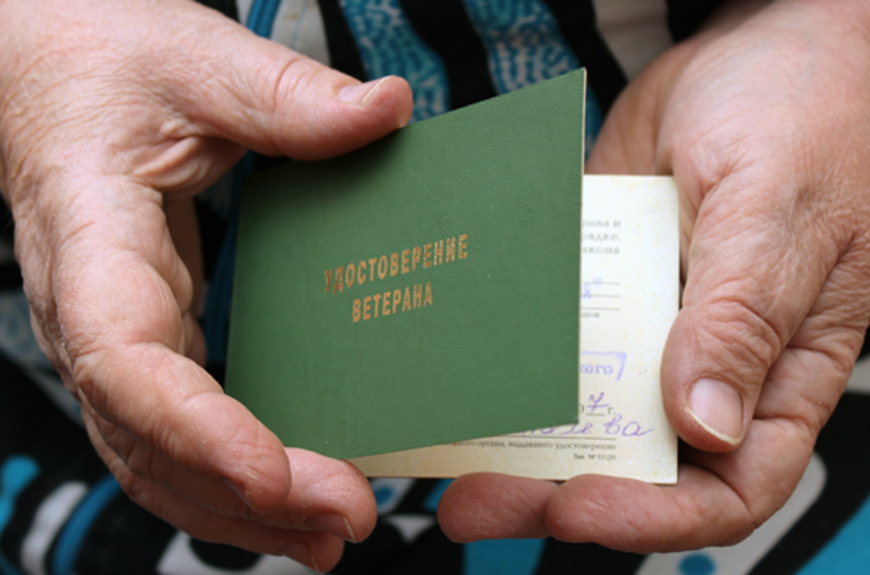 УДОСТОВЕРЕНИЕ
ВЕТЕРАНА
рава и
рядке,
акона
ского
7 г.
лева
органа, выдавшего удостоверение
Зак. №